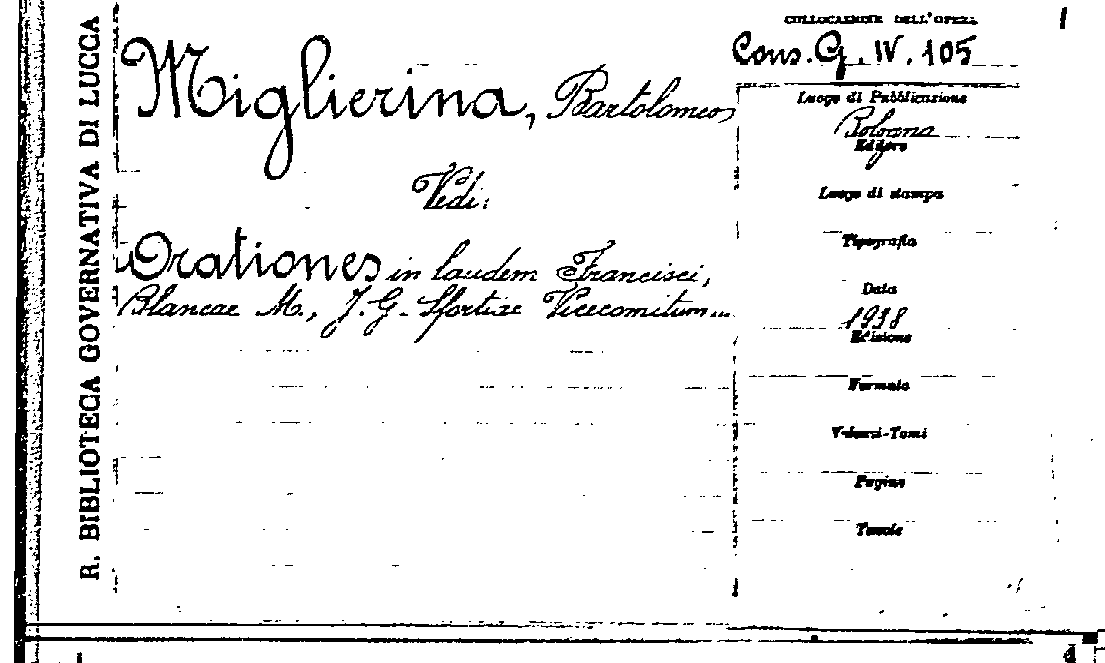 R. BIBLIOTECA GOVERNATIVA DI LUCCA
Miglierina, Bartolomeo
Vedi:
Orationes in laudem Francisci,
Blancae M., J. G. Sfortiae Vicecomitum...
COLLOCAZIONE DELL'OPERA
Cons. G. IV. 105
Luogo di Pubblicazione
Bologna
Editore
Luogo di stampa
Tipografia
Data
1938
Edizione
Formato
Volumi-Tomi
Pagine
Tavole